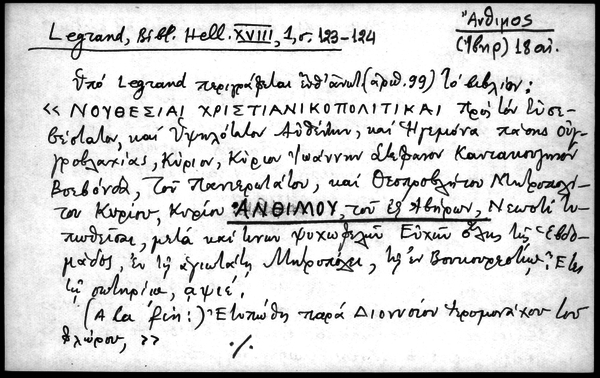 Legrand, Bibl. Hell. XVIII, 1, σ. 123-124
Ἄνθιμος
(Ἴβηρ) 18 αἰ.
Ὑπό Legrand περιγράφεται ἐνθ' ἀνωτ. (ἀριθ. 99) τό βιβλίον:
<< ΝΟΥΘΕΣΙΑΙ ΧΡΙΣΤΙΑΝΙΚΟΠΟΛΙΤΙΚΑΙ πρός τόν Εὐσε-
βέστατον, καί Ὑψηλότατον Αὐθέντην, καί Ἡγεμόνα πάσης Οὐγ-
γροβλαχίας, Κύριον, Κύριον Ἰωάννην Στέφανον Καντακουζηνόν
Βοεβόνδα, τοῦ Πανιερωτάτου, καί Θεοπροβλήτου Μητροπολί-
του Κυρίου, Κυρίου ἈΝΘΙΜΟΥ, τοῦ ἐξ Ἰβήρων, Νεωστί τυ-
πωθεῖσαι, μετά καί τινων ψυχωφελῶν Εὐχῶν ὅλης τῆς Ἑβδο-
μάδος, ἐν τῇ ἁγιωτάτῃ Μητροπόλει, τῇ ἐν Βουκουρεστίῳ: Ἔτει
τῷ σωτηρίῳ, αψιέ.
(A la fin:) Ἐτυπώθη παρά Διονυσίου Ἱερομονάχου τοῦ
Φλώρου, >>
./.